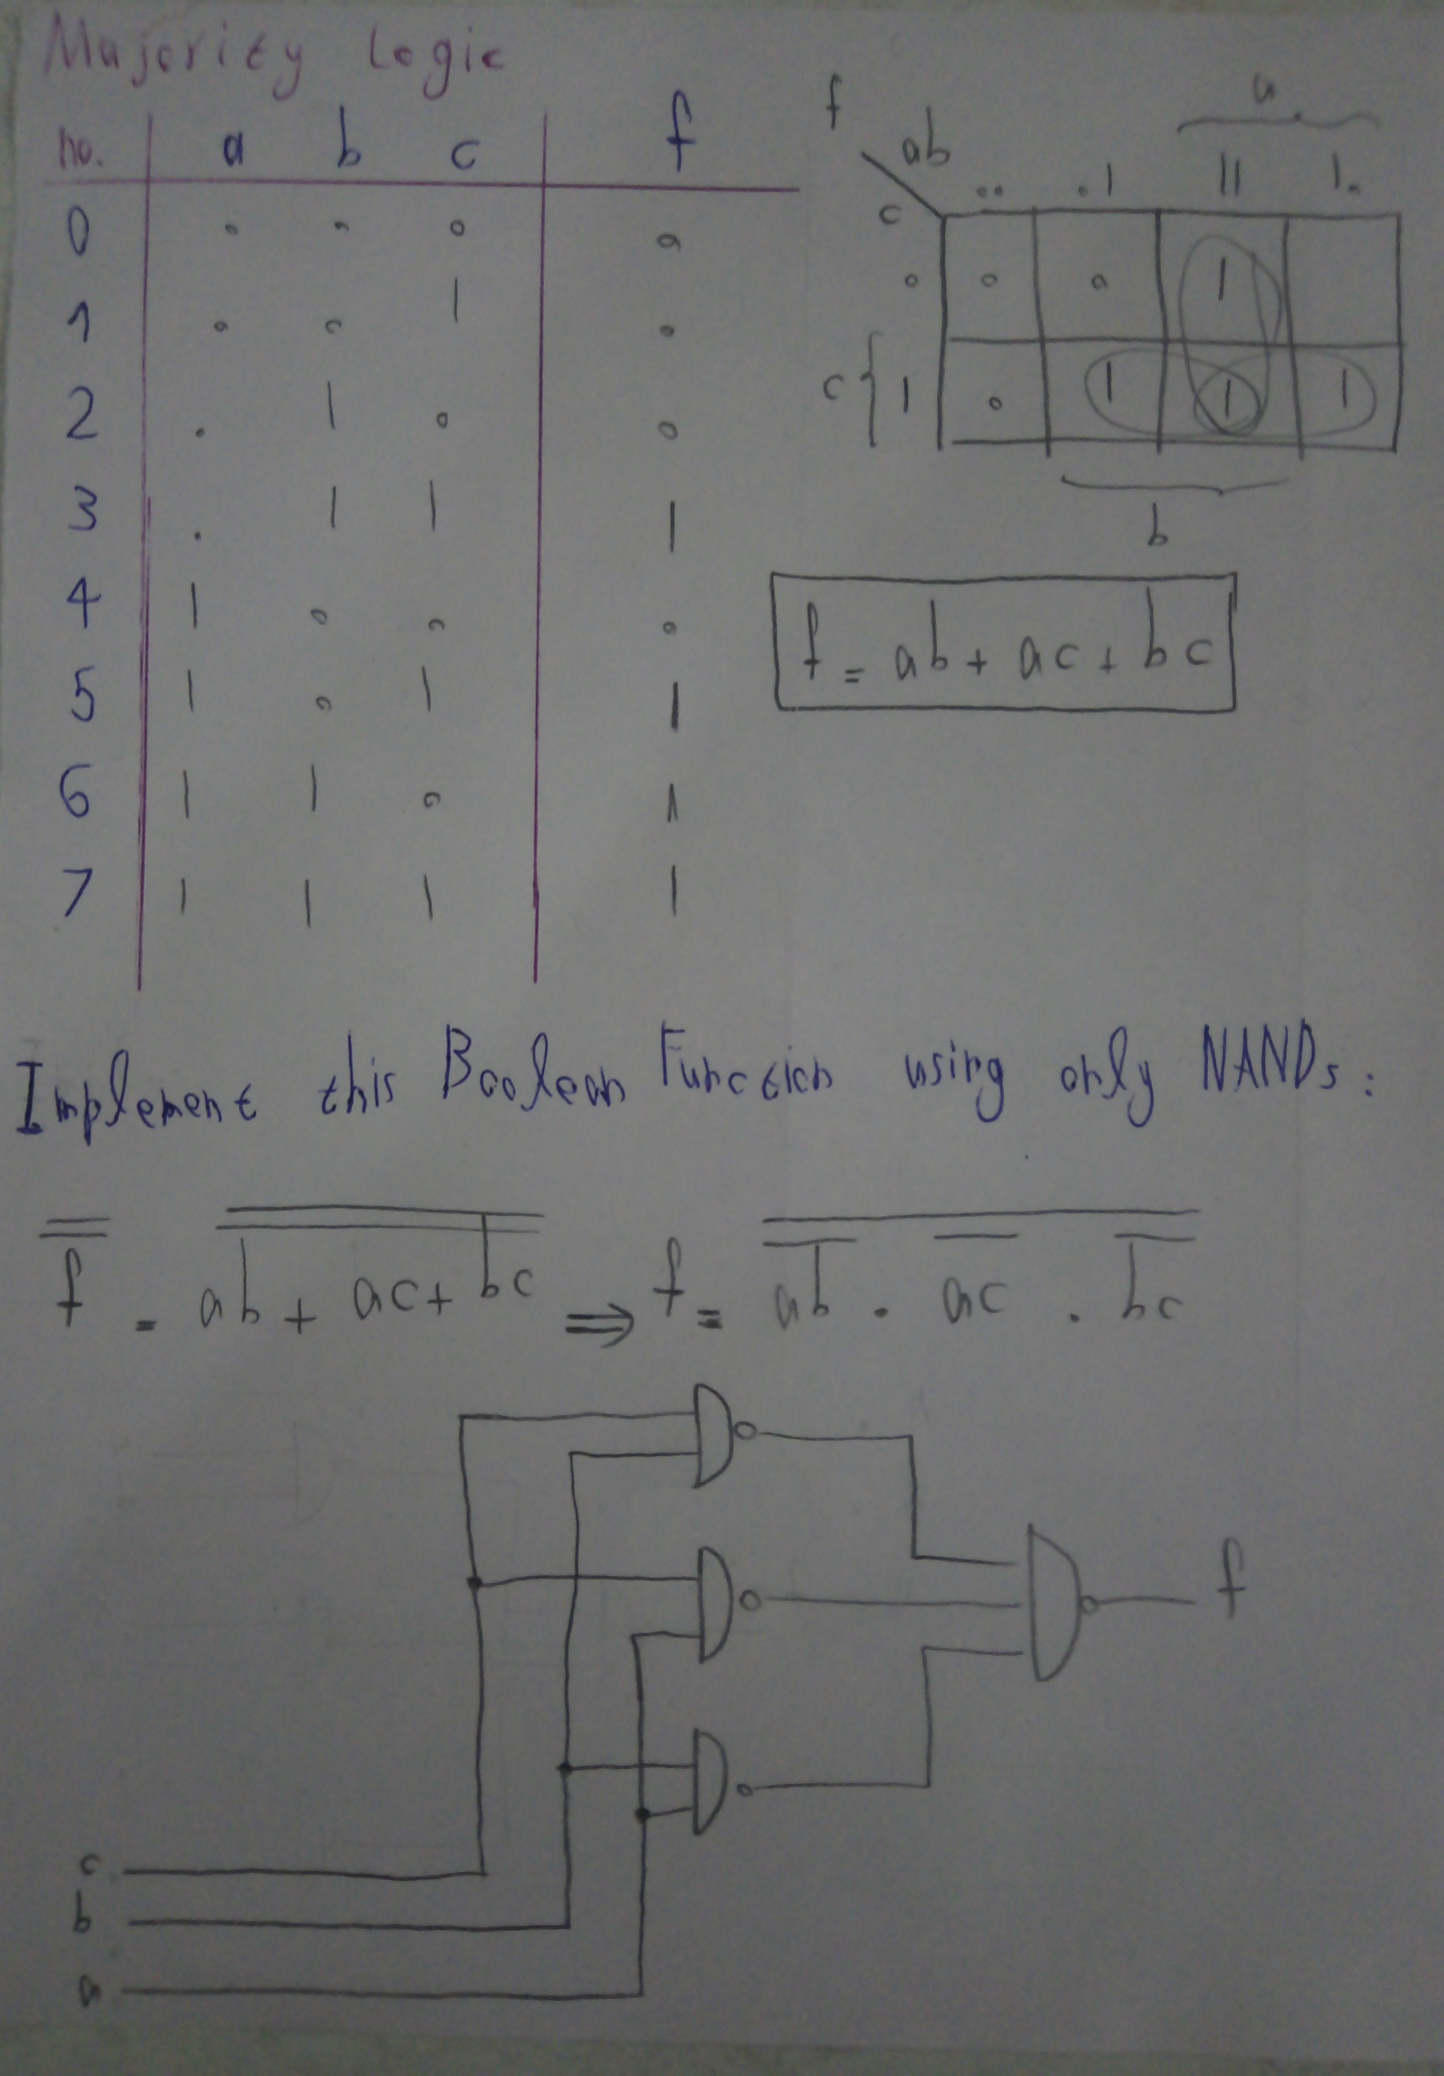 Majority Logic
no. a b c f
0 0 0 0 0
1 0 0 1 0
2 0 1 0 0
3 0 1 1 1
4 1 0 0 0
5 1 0 1 1
6 1 1 0 1
7 1 1 1 1
f a
ab 00 01 11 10
c
0 0 0 1
c { 1 0 1 1 1
b
f = ab + ac + bc
Implement this Boolean Function using only NANDs:
f̿ = \overline{\overline{ab + ac + bc}} ⇒ f = \overline{\overline{ab} . \overline{ac} . \overline{bc}}
f
c
b
a